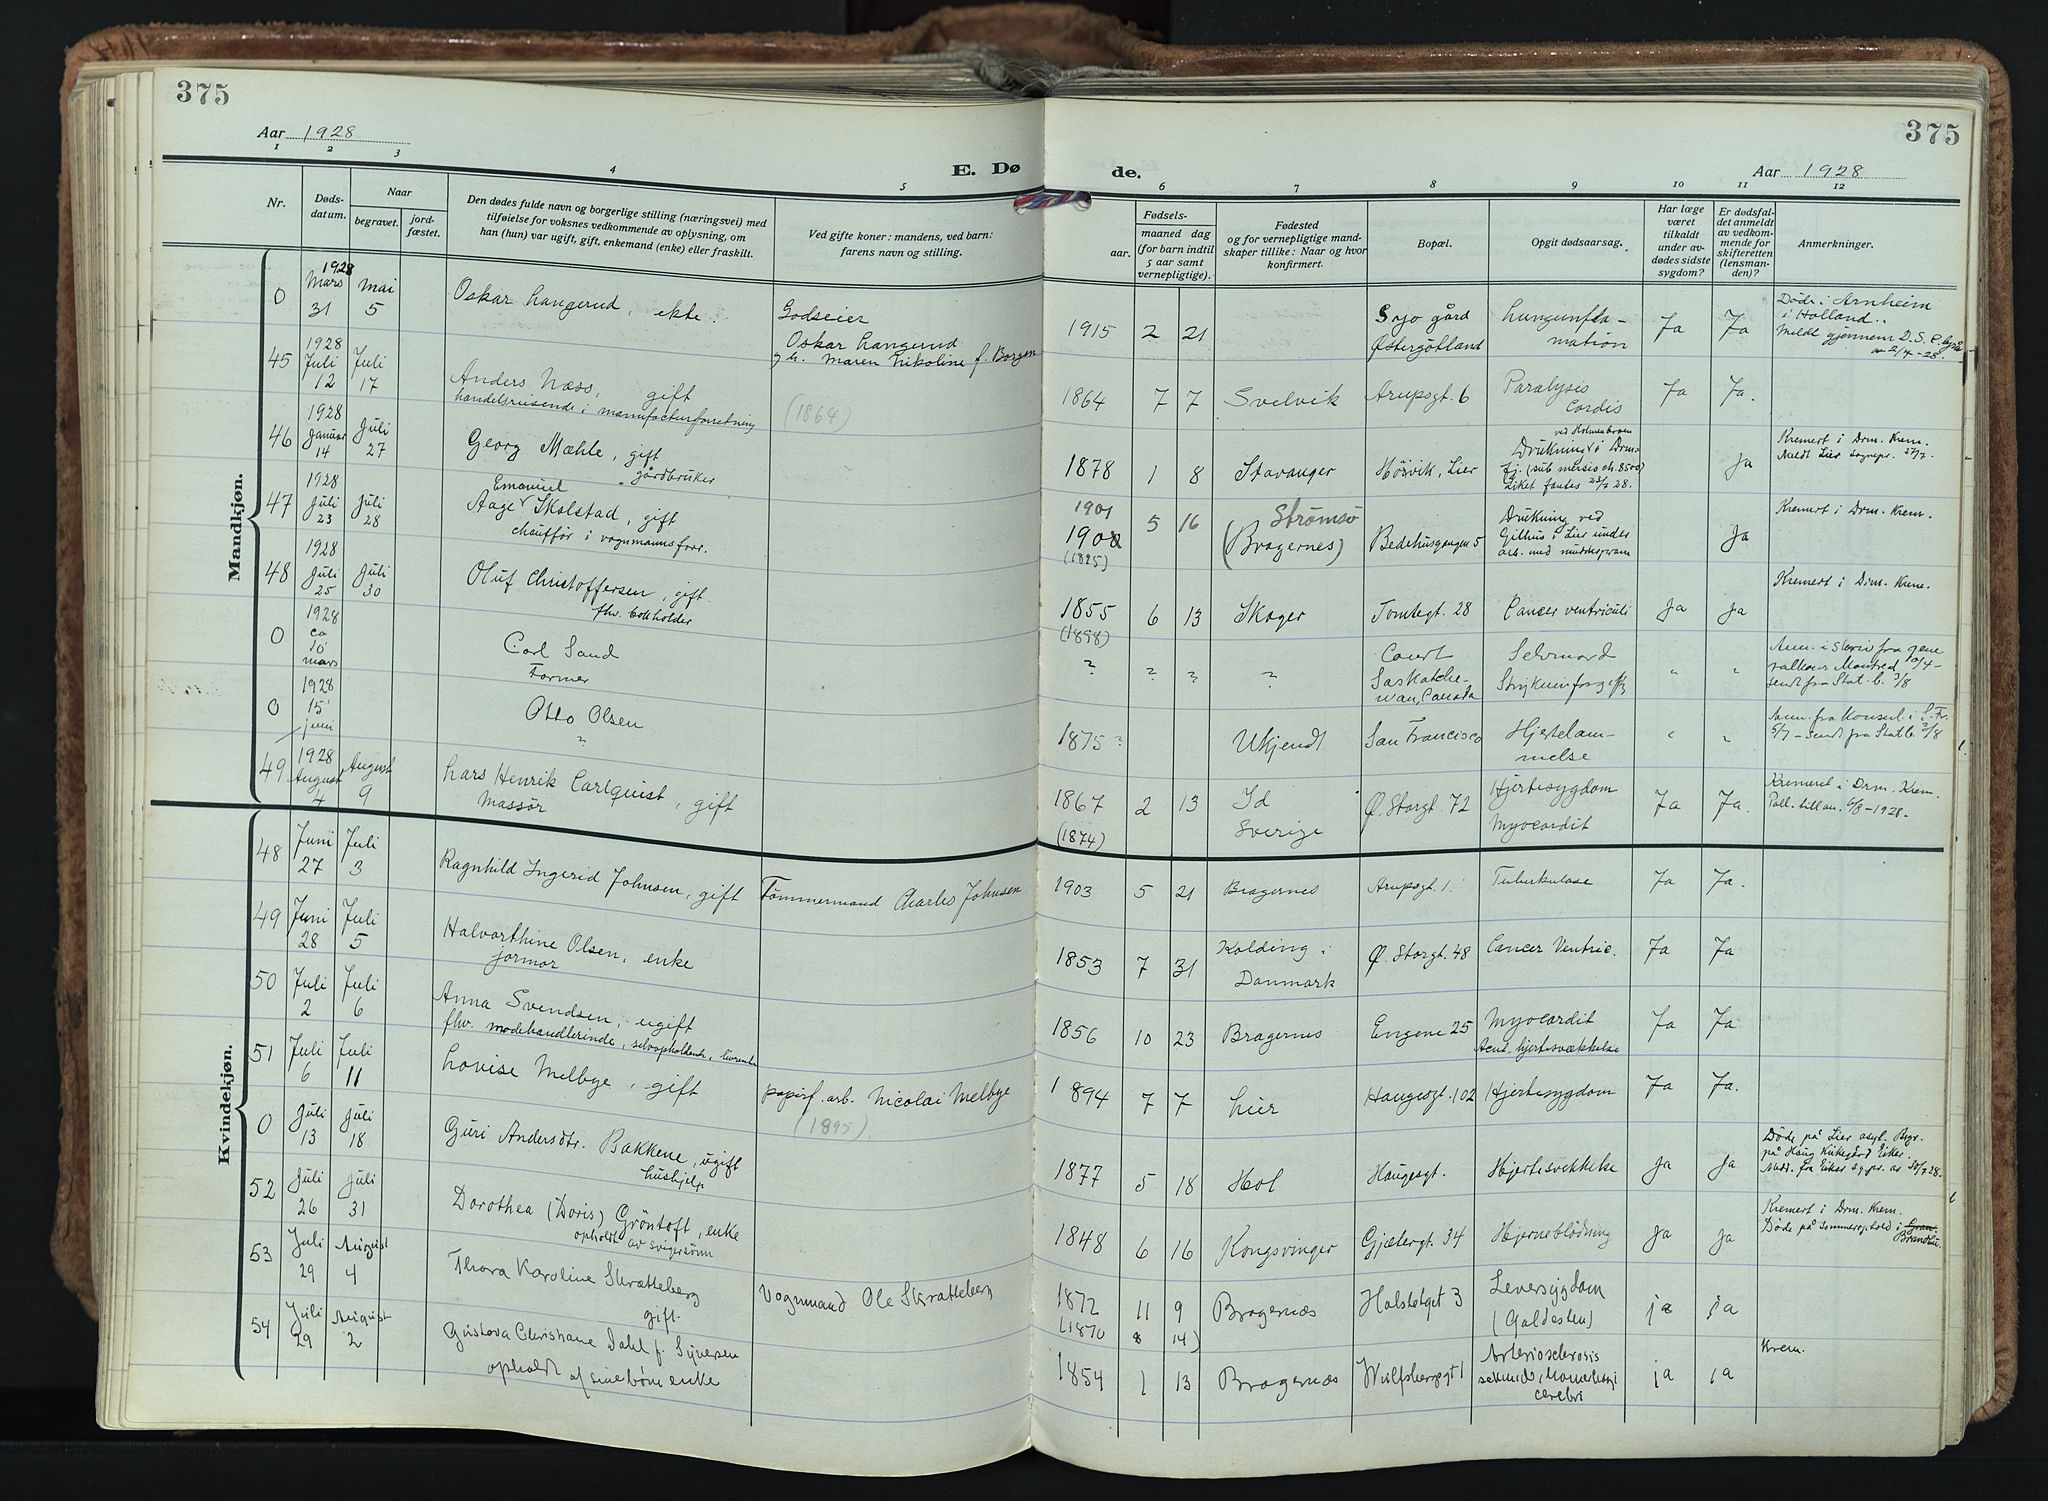 375
375
Aar 1928
E. Døde.
Aar 1928
1 2 3 4 5 6 7 8 9 10 11 12
Nr.
Døds-
datum.
Naar
begravet.
jord-
fæstet.
Den dødes fulde navn og borgerlige stilling (næringsvei) med
tilføielse for voksnes vedkommende av oplysning, om
han (hun) var ugift, gift, enkemand (enke) eller fraskilt.
Ved gifte koner: mandens, ved barn:
farens navn og stilling.
Fødsels-
aar.
maaned dag
(for barn indtil
5 aar samt
vernepligtige).
Fødested
og for vernepligtige mand-
skaper tillike: Naar og hvor
konfirmert.
Bopæl.
Opgit dødsaarsag.
Har læge
været
tilkaldt
under av-
dødes sidste
sygdom?
Er dødsfal-
det anmeldt
av vedkom-
mende for
skifteretten
(lensman-
den)?
Anmerkninger.
Mandkjøn.
0 1928 Mars 31 Mai 5 Oskar Langerud, ekte. Godseier
Oskar Langerud
g.h. Maren Nikoline f. Borgen
1915 2 21 Sojo gård
Østergøtland
Lungeinfla-
mation
Ja Ja
Døde i Arnheim
i Holland.
Meldt gjennem D. S.
av 2/4-28.
45 1928 Juli 12 Juli 17 Anders Næss, gift
handelsreisende i manufacturforretning
(1864)
1864 7 7 Svelvik Arupsgt. 6 Paralysis
Cordis
Ja Ja.
46 1928 Januar 14 Juli 27 Georg Mæhle, gift
gårdbruker
1878 1 8 Stavanger Høsvik, Lier
ved Holmenbroen
Drukning i Drm.
fj. (submersio ch. 8500)
Liket fantes 23/7 28.
Ja
Kremert i Drm. Krem.
Meldt Lier sognepr. 27/7.
47 1928 Juli 23 Juli 28 Emanuel
Aage Skolstad, gift
chauffør i vognmannsforr.
1901
1900
(1895)
5 16 Strømsø
(Bragernes)
Bedehusgangen 5
Drukning ved
Gilhus i Lier under
arb. med mudderpram
Ja
Kremert i Drm. Krem.
48 1928 Juli 25 Juli 30 Oluf Christoffersen, gift
fhv. bokholder
1855 6 13 Skoger Tomtegt. 28 Cancer ventriculi Ja Ja
Kremert i Drm. Krem.
(1898)
0 1928 ca 10 mars Carl Sand
Farmer
? ? ? ? Court
Saskatche-
wan, Canada
Selvmord
" "
Anm. i skriv fra gene
ralkons Montreal 10/4-
sendt fra Stat. b. 3/8
0 1928 15 juni Otto Olsen
?
1875 ? Ukjendt San Francisco Hjertelam-
melse
" "
Anm. fra Konsul. i S. Fr.
5/7 - sendt fra Stat b. 3/8
49 1928 August 4 August 9 Lars Henrik Carlquist, gift
Massør
1867 2 13 Id
Sverige
(1874)
Ø. Storgt. 72 Hjertesygdom
Myocardit
Ja Ja.
Kremeret i Drm. Krem.
Poli. tillat. 6/8-1928.
Kvindekjøn.
48 Juni 27 Juli 3 Ragnhild Ingerid Johnsen, gift Tømmermand Charles Johnsen
1903 5 21 Bragernes Arupsgt 1. Tuberkulose Ja Ja.
49 Juni 28 Juli 5 Halvorthine Olsen, enke
jormor
1853 7 31 Kolding i
Danmark
Ø. Storgt. 48 Cancer Ventric. Ja Ja
50 Juli 2 Juli 6 Anna Svendsen, ugift
fhv. modehandlerinde, selvopholdende, livrente
1856 10 23 Bragernes Engene 25 Myocardit
Acut hjertesvækkelse
Ja Ja
51 Juli 6 Juli 11 Lovise Melbye, gift papirf. arb. Nicolai Melbye
(1895)
1894 7 7 Lier Haugesgt. 102 Hjertesygdom Ja Ja.
0 Juli 13 Juli 18 Guri Andersdtr. Bakkene, ugift
hushjelp
1877 5 18 Hol Haugesgt. Hjertesvekkelse Ja Ja
Døde på Lier asyl. Begr.
på Haug kirkegård Eiker.
Med. fra Eiker sgpr. av 30/7 28.
52 Juli 26 Juli 31 Dorothea (Doris) Grøntoft, enke
opholdt av svigersønn
1848 6 16 Kongsvinger Gjætergt. 34 Hjerneblødning Ja Ja
Kremert i Drm. Krem.
Døde på sommerophold i Gran
Brandbu.
53 Juli 29 August 4 Thora Karoline Skratteberg
gift.
Vognmand Ole Skratteberg
1872 11 9 Bragernæs Holstetget 3 Leversygdom
(Galdesten)
ja ja
(1870 8 14)
54 Juli 29 August 2 Gustava Christiane Dahl f. Syversen
opholdt af sine børn enke
1854 1 13 Bragernæs Wulfsbergsgt 1 Arteriosclerosis
cerebri
ja ja
Krem.